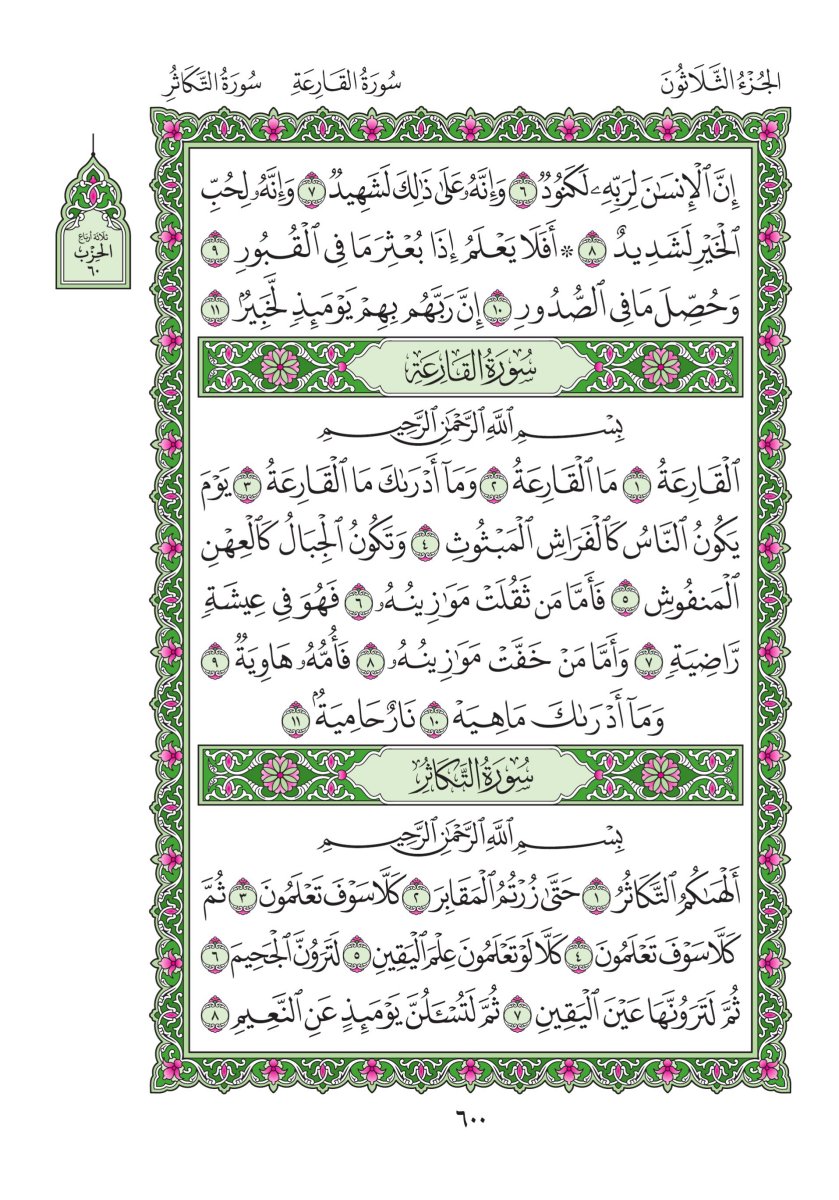 الجُزْءُ الثَّلَاثُونَ
سُورَةُ القَارِعَةِ سُورَةُ التَّكَاثُرِ
إِنَّ ٱلْإِنسَٰنَ لِرَبِّهِۦ لَكَنُودٌ ٦ وَإِنَّهُۥ عَلَىٰ ذَٰلِكَ لَشَهِيدٌ ٧ وَإِنَّهُۥ لِحُبِّ
ٱلْخَيْرِ لَشَدِيدٌ ٨ ۞ أَفَلَا يَعْلَمُ إِذَا بُعْثِرَ مَا فِي ٱلْقُبُورِ ٩
وَحُصِّلَ مَا فِي ٱلصُّدُورِ ١٠ إِنَّ رَبَّهُم بِهِمْ يَوْمَئِذٍ لَّخَبِيرٌۢ ١١
ثلاثة أرباع
الحِزْب
٦٠
سُورَةُ القَارِعَةِ
بِسْمِ ٱللَّهِ ٱلرَّحْمَٰنِ ٱلرَّحِيمِ
ٱلْقَارِعَةُ ١ مَا ٱلْقَارِعَةُ ٢ وَمَآ أَدْرَىٰكَ مَا ٱلْقَارِعَةُ ٣ يَوْمَ
يَكُونُ ٱلنَّاسُ كَٱلْفَرَاشِ ٱلْمَبْثُوثِ ٤ وَتَكُونُ ٱلْجِبَالُ كَٱلْعِهْنِ
ٱلْمَنفُوشِ ٥ فَأَمَّا مَن ثَقُلَتْ مَوَٰزِينُهُۥ ٦ فَهُوَ فِي عِيشَةٍ
رَّاضِيَةٍ ٧ وَأَمَّا مَنْ خَفَّتْ مَوَٰزِينُهُۥ ٨ فَأُمُّهُۥ هَاوِيَةٌ ٩
وَمَآ أَدْرَىٰكَ مَا هِيَهْ ١٠ نَارٌ حَامِيَةٌۢ ١١
سُورَةُ التَّكَاثُرِ
بِسْمِ ٱللَّهِ ٱلرَّحْمَٰنِ ٱلرَّحِيمِ
أَلْهَىٰكُمُ ٱلتَّكَاثُرُ ١ حَتَّىٰ زُرْتُمُ ٱلْمَقَابِرَ ٢ كَلَّا سَوْفَ تَعْلَمُونَ ٣ ثُمَّ
كَلَّا سَوْفَ تَعْلَمُونَ ٤ كَلَّا لَوْ تَعْلَمُونَ عِلْمَ ٱلْيَقِينِ ٥ لَتَرَوُنَّ ٱلْجَحِيمَ ٦
ثُمَّ لَتَرَوُنَّهَا عَيْنَ ٱلْيَقِينِ ٧ ثُمَّ لَتُسْـَٔلُنَّ يَوْمَئِذٍ عَنِ ٱلنَّعِيمِ ٨
٦٠٠